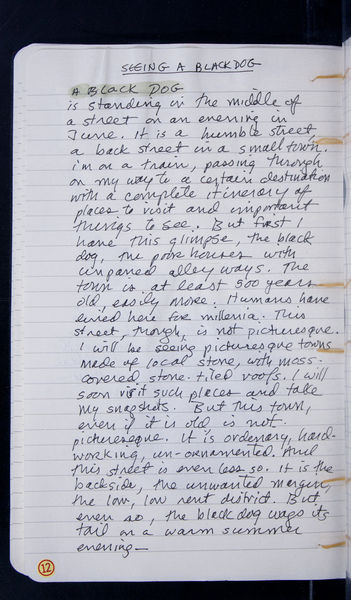 SEEING A BLACK DOG
A BLACK DOG
is standing in the middle of
a street on an evening in
June. It is a humble street,
a back street in a small town.
i'm on a train, passing through
on my way to a certain destination
with a complete itinerary of
places to visit and important
things to see. But first I
have this glimpse, the black
dog, the poor houses with
unpaved alley ways. The
town is at least 500 years
old, easily more. Humans have
lived here for millenia. This
street, though, is not picturesque.
I will be seeing picturesque towns
made of local stone, with moss-
covered stone-tiled roofs. I will
soon visit such places and take
my snapshots. But this town,
even if it is old is not
picturesque. It is ordenary, hard-
working, un-ornamented. And
this street is even less so. It is the
backside, the unwanted margin,
the low, low rent district. But
even so, the black dog wags its
tail on a warm summer
evening—
12